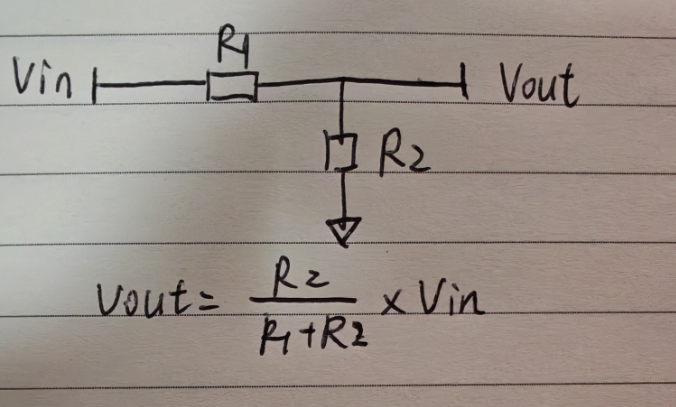 R1
Vin Vout
R2
Vout = R2 / R1+R2 × Vin